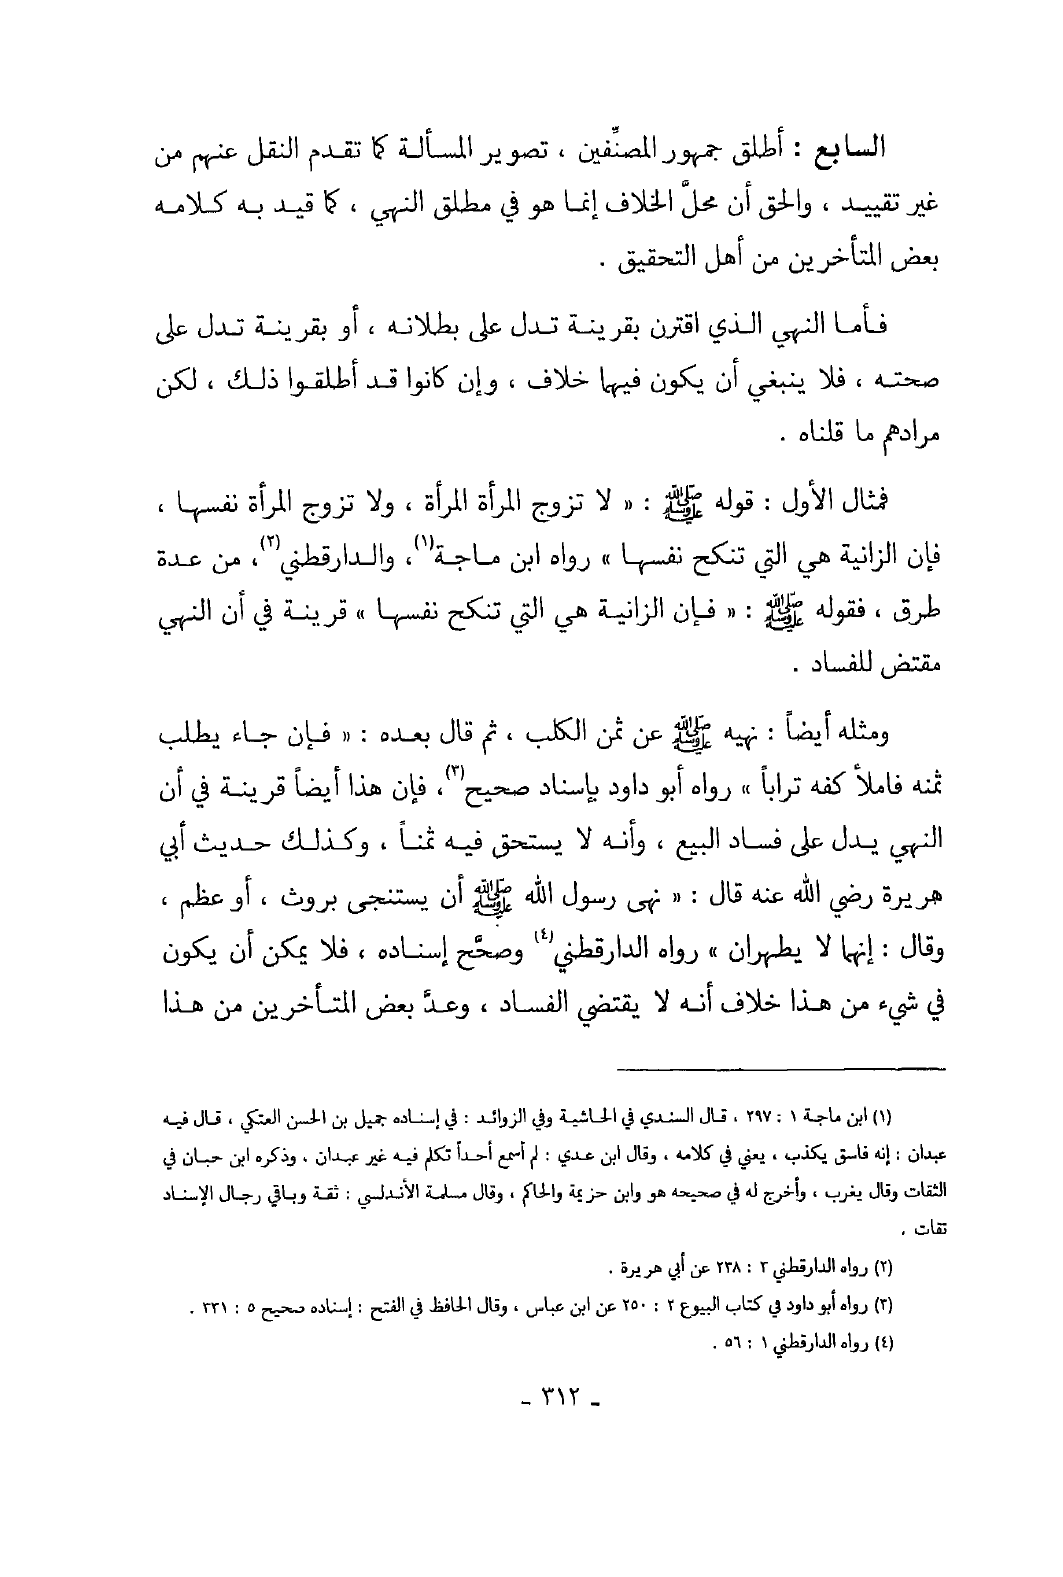 السابع : أطلق جمهور المصنِّفين ، تصوير المسألة كما تقدم النقل عنهم من
غير تقييد ، والحق أن محلَّ الخلاف إنما هو في مطلق النهي ، كما قيد به كلامه
بعض المتأخرين من أهل التحقيق .
فأما النهي الذي اقترن بقرينة تدل على بطلانه ، أو بقرينة تدل على
صحته ، فلا ينبغي أن يكون فيها خلاف ، وإن كانوا قد أطلقوا ذلك ، لكن
مرادهم ما قلناه .
فمثال الأول : قوله ﷺ : « لا تزوج المرأة المرأة ، ولا تزوج المرأة نفسها ،
فإن الزانية هي التي تنكح نفسها » رواه ابن ماجة(١)، والدارقطني(٢)، من عدة
طرق ، فقوله ﷺ : « فإن الزانية هي التي تنكح نفسها » قرينة في أن النهي
مقتض للفساد .
ومثله أيضاً : نهيه ﷺ عن ثمن الكلب ، ثم قال بعده : « فإن جاء يطلب
ثمنه فاملأ كفه تراباً » رواه أبو داود بإسناد صحيح(٣)، فإن هذا أيضاً قرينة في أن
النهي يدل على فساد البيع ، وأنه لا يستحق فيه ثمناً ، وكذلك حديث أبي
هريرة رضي الله عنه قال : « نهى رسول الله ﷺ أن يستنجى بروث ، أو عظم ،
وقال : إنها لا يطهران » رواه الدارقطني(٤) وصحَّح إسناده ، فلا يمكن أن يكون
في شيء من هذا خلاف أنه لا يقتضي الفساد ، وعدَّ بعض المتأخرين من هذا
(١) ابن ماجة ١ : ٢٩٧ ، قال السندي في الحاشية وفي الزوائد : في إسناده جميل بن الحسن العتكي ، قال فيه
عبدان : إنه فاسق يكذب ، يعني في كلامه ، وقال ابن عدي : لم أسمع أحداً تكلم فيه غير عبدان ، وذكره ابن حبان في
الثقات وقال يغرب ، وأخرج له في صحيحه هو وابن خزيمة والحاكم ، وقال مسلمة الأندلسي : ثقة وباقي رجال الإسناد
ثقات .
(٢) رواه الدارقطني ٣ : ٢٣٨ عن أبي هريرة .
(٣) رواه أبو داود في كتاب البيوع ٢ : ٢٥٠ عن ابن عباس ، وقال الحافظ في الفتح : إسناده صحيح ٥ : ٣٣١ .
(٤) رواه الدارقطني ١ : ٥٦ .
ـ ٣١٢ ـ